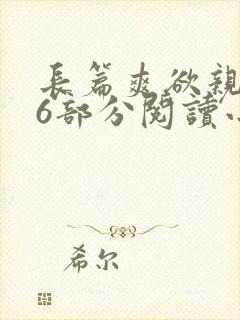 長篇爽欲親
6部分閱讀小
希尔